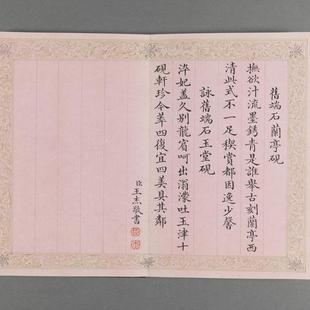 舊端石蘭亭硯
撫欲汁流墨銹青是誰舉古刻蘭亭西
清此式不一足稧賞都因逸少馨
詠舊端石玉堂硯
淬妃盖久別龍賓呵出溟濛吐玉津十
硯軒珍今萃四復宜四美具其鄰
臣王杰敬書